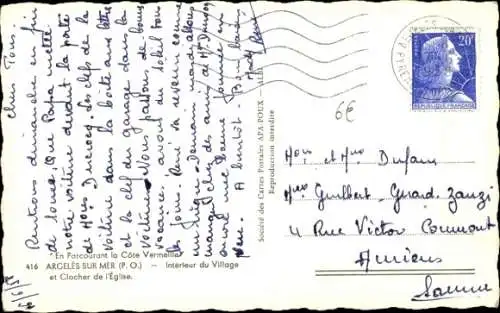 Chers Tous.
Rentrons dimanche en fin
de soirée, que Papa mette
notre voiture devant la porte
de Mons Ducrocq. Les clefs de la
voiture dans la boîte aux lettres
et la clef du garage dans la
voiture. Nous passons de bonnes
vacances avons du soleil tous
les jours. René va revenir comme
un nègre. Demain midi allons
manger chez des amis de Mme
avons une bonne journée en
A bientôt. Bons baisers
"En Parcourant la Côte Vermeille"
416 ARGELÈS SUR MER (P. O.) — Intérieur du Village
et Clocher de l'Église.
Société des Cartes Postales APA-POUX - ALBI
Reproduction interdite
20F
RÉPUBLIQUE FRANÇAISE
6€
Mons et Mme Dufour
Mme Guilbert Gérard Zanzi
4 Rue Victor Commont
Amiens
Somme